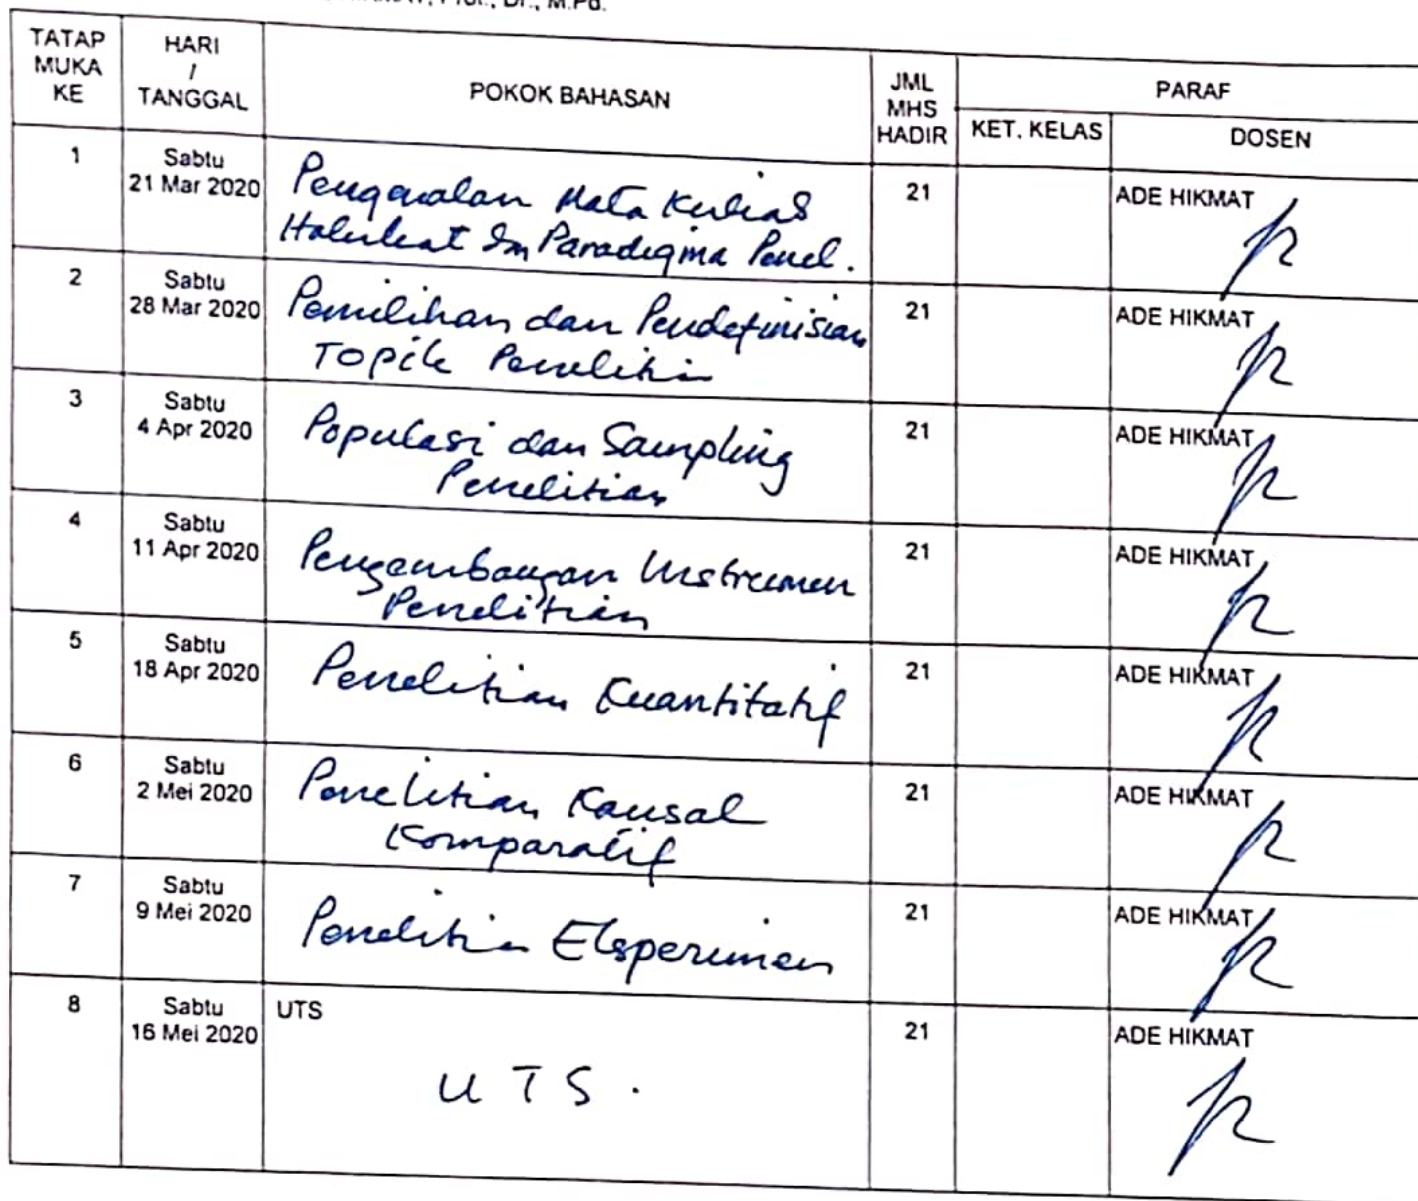 Prof., Dr., M.Pd.
TATAP MUKA KE
HARI / TANGGAL
POKOK BAHASAN
JML MHS HADIR
PARAF
KET. KELAS
DOSEN
1
Sabtu
21 Mar 2020
Pengenalan Mata Kuliah
Hakekat dan Paradigma Penel.
21
ADE HIKMAT
2
Sabtu
28 Mar 2020
Pemilihan dan Pendefinisian
Topik Penelitian
21
ADE HIKMAT
3
Sabtu
4 Apr 2020
Populasi dan Sampling
Penelitian
21
ADE HIKMAT
4
Sabtu
11 Apr 2020
Pengembangan Instrumen
Penelitian
21
ADE HIKMAT
5
Sabtu
18 Apr 2020
Penelitian Kuantitatif
21
ADE HIKMAT
6
Sabtu
2 Mei 2020
Penelitian Kausal
Komparatif
21
ADE HIKMAT
7
Sabtu
9 Mei 2020
Penelitian Eksperimen
21
ADE HIKMAT
8
Sabtu
16 Mei 2020
UTS
UTS.
21
ADE HIKMAT